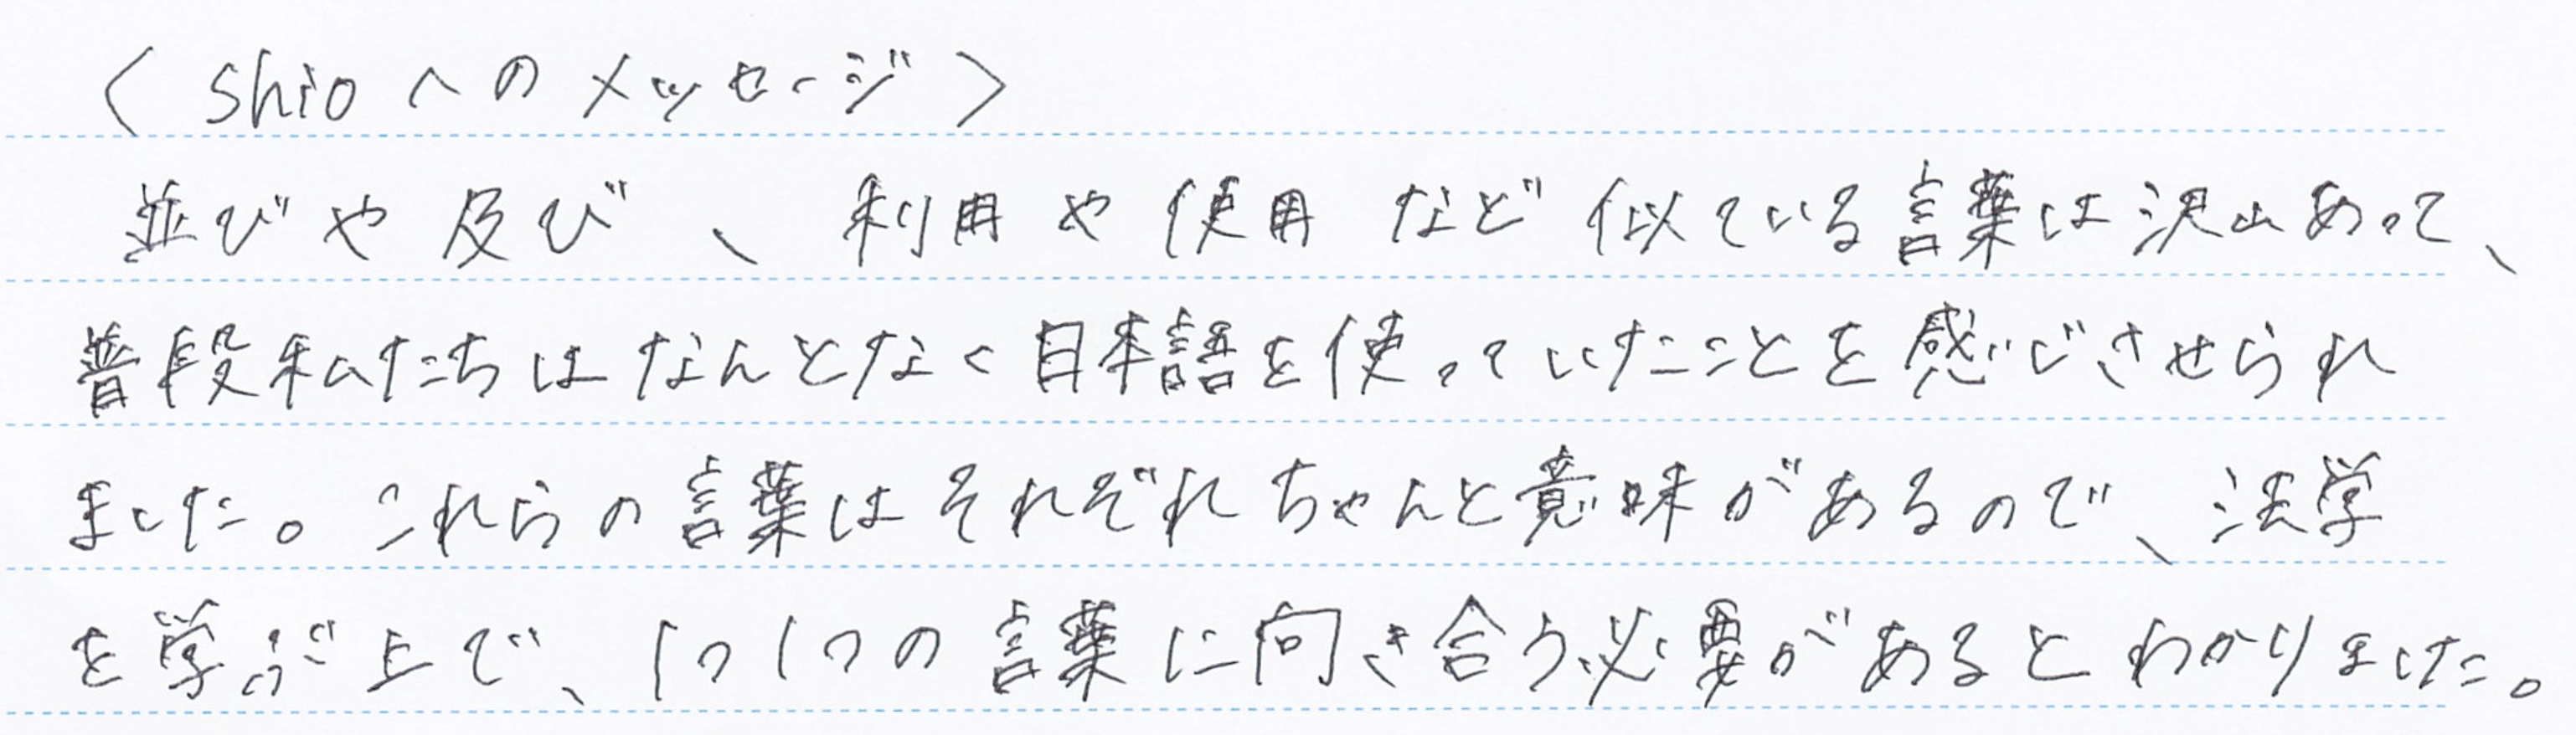 〈shioへのメッセージ〉
並びや及び、利用や使用など似ている言葉は沢山あって、
普段私たちはなんとなく日本語を使っていたことを感じさせられ
ました。これらの言葉はそれぞれちゃんと意味があるので、法学
を学ぶ上で、1つ1つの言葉に向き合う必要があるとわかりました。